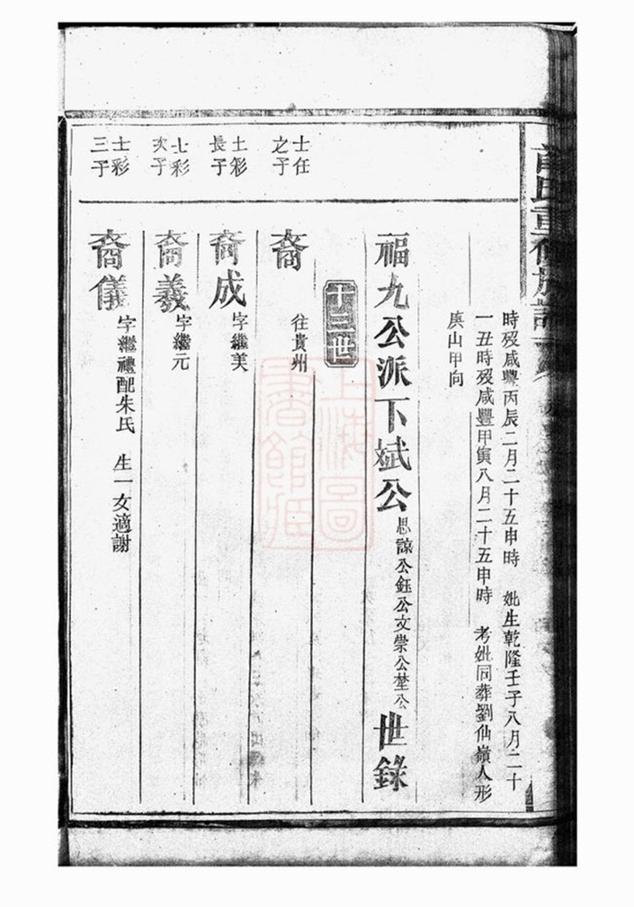 氏重修族譜
時歿咸豐丙辰二月二十五申時 妣生乾隆壬子八月二十
一丑時歿咸豐甲寅八月二十五申時 考妣同葬劉仙嶺人形
庚山甲向
福九公派下斌公思諒公鈺公文崇公埜公世錄
十三世
士任之子
裔 往貴州
士彩長子
裔成 字繼美
士彩次子
裔義 字繼元
士彩三子
裔儀 字繼禮配朱氏 生一女適謝
上海圖書館藏